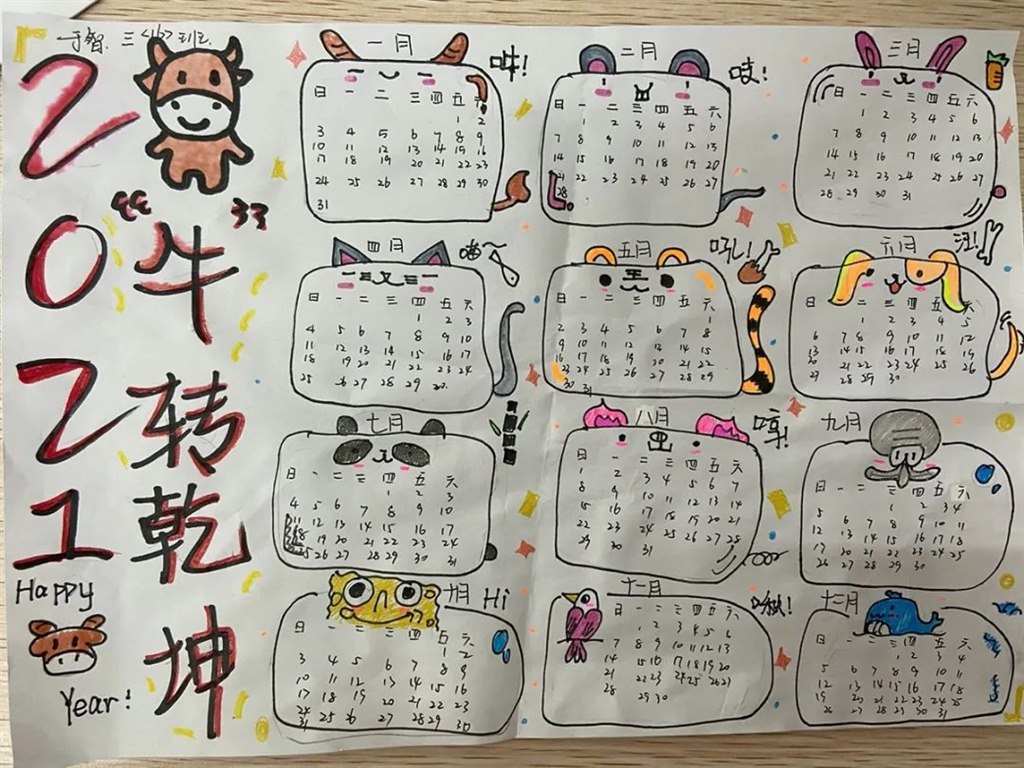 于智. 三<16>班
2021
"牛"转乾坤
Happy
Year!
一月
哞!
日 一 二 三 四 五 六
1 2
3 4 5 6 7 8 9
10 11 12 13 14 15 16
17 18 19 20 21 22 23
24 25 26 27 28 29 30
31
二月
吱!
日 一 二 三 四 五 六
1 2 3 4 5 6
7 8 9 10 11 12 13
14 15 16 17 18 19 20
21 22 23 24 25 26 27
28
三月
日 一 二 三 四 五 六
1 2 3 4 5 6
7 8 9 10 11 12 13
14 15 16 17 18 19 20
21 22 23 24 25 26 27
28 29 30 31
四月
喵~
日 一 二 三 四 五 六
1 2 3
4 5 6 7 8 9 10
11 12 13 14 15 16 17
18 19 20 21 22 23 24
25 26 27 28 29 30
五月
吼!
日 一 二 三 四 五 六
1
2 3 4 5 6 7 8
9 10 11 12 13 14 15
16 17 18 19 20 21 22
23 24 25 26 27 28 29
30 31
六月
汪!
日 一 二 三 四 五 六
1 2 3 4 5
6 7 8 9 10 11 12
13 14 15 16 17 18 19
20 21 22 23 24 25 26
27 28 29 30
七月
日 一 二 三 四 五 六
1 2 3
4 5 6 7 8 9 10
11 12 13 14 15 16 17
18 19 20 21 22 23 24
25 26 27 28 29 30 31
八月
哼!
日 一 二 三 四 五 六
1 2 3 4 5 6 7
8 9 10 11 12 13 14
15 16 17 18 19 20 21
22 23 24 25 26 27 28
29 30 31
九月
日 一 二 三 四 五 六
1 2 3 4
5 6 7 8 9 10 11
12 13 14 15 16 17 18
17 20 21 22 23 24 25
26 27 28 29 30
十月
Hi
日 一 二 三 四 五 六
1 2
3 4 5 6 7 8 9
10 11 12 13 14 15 16
17 18 19 20 21 22 23
24 25 26 27 28 29 30
31
十一月
啾!
日 一 二 三 四 五 六
1 2 3 4 5 6
7 8 9 10 11 12 13
14 15 16 17 18 19 20
21 22 23 24 25 26 27
28 29 30
十二月
日 一 二 三 四 五 六
1 2 3 4
5 6 7 8 9 10 11
12 13 14 15 16 17 18
19 20 21 22 23 24 25
26 27 28 29 30 31